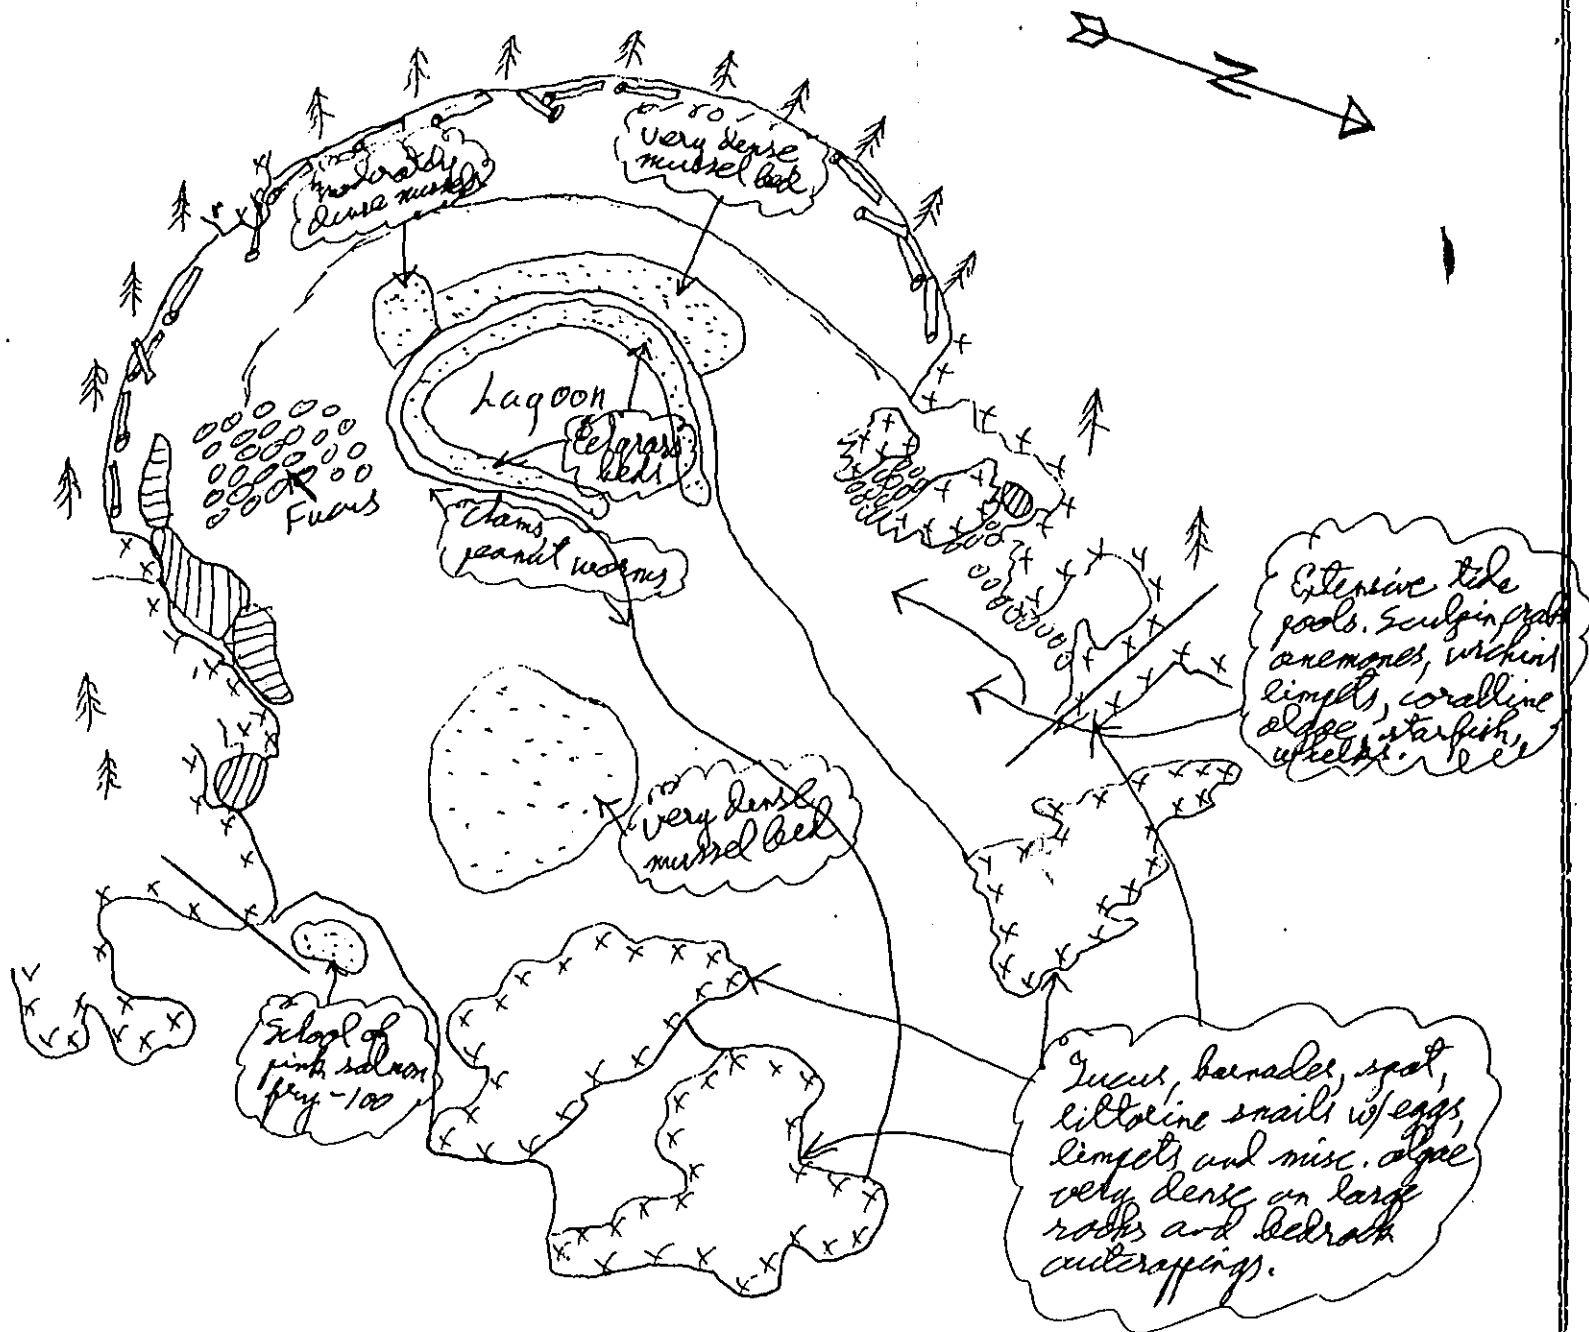 N
moderately
dense mussels
very dense
mussel bed
Lagoon
Eelgrass
beds
Fucus
Clams,
peanut worms
Extensive tide
pools. Sculpin, crabs
anemones, urchins
limpets, coralline
algae, starfish,
whelks.
very dense
mussel bed
School of
pink salmon
fry -100
Fucus, barnacles, spat,
littorine snails w/eggs,
limpets and misc. algae
very dense on large
rocks and bedrock
outcroppings.